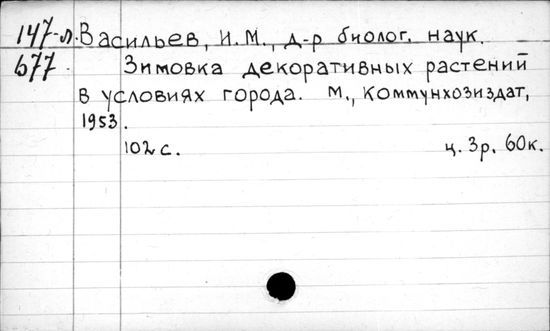 147-л. Васильев, И.М., д-р биолог. наук.
677. Зимовка декоративных растений
в условиях города. М., Коммунхозиздат,
1953.
102 с. ц. 3р. 60к.